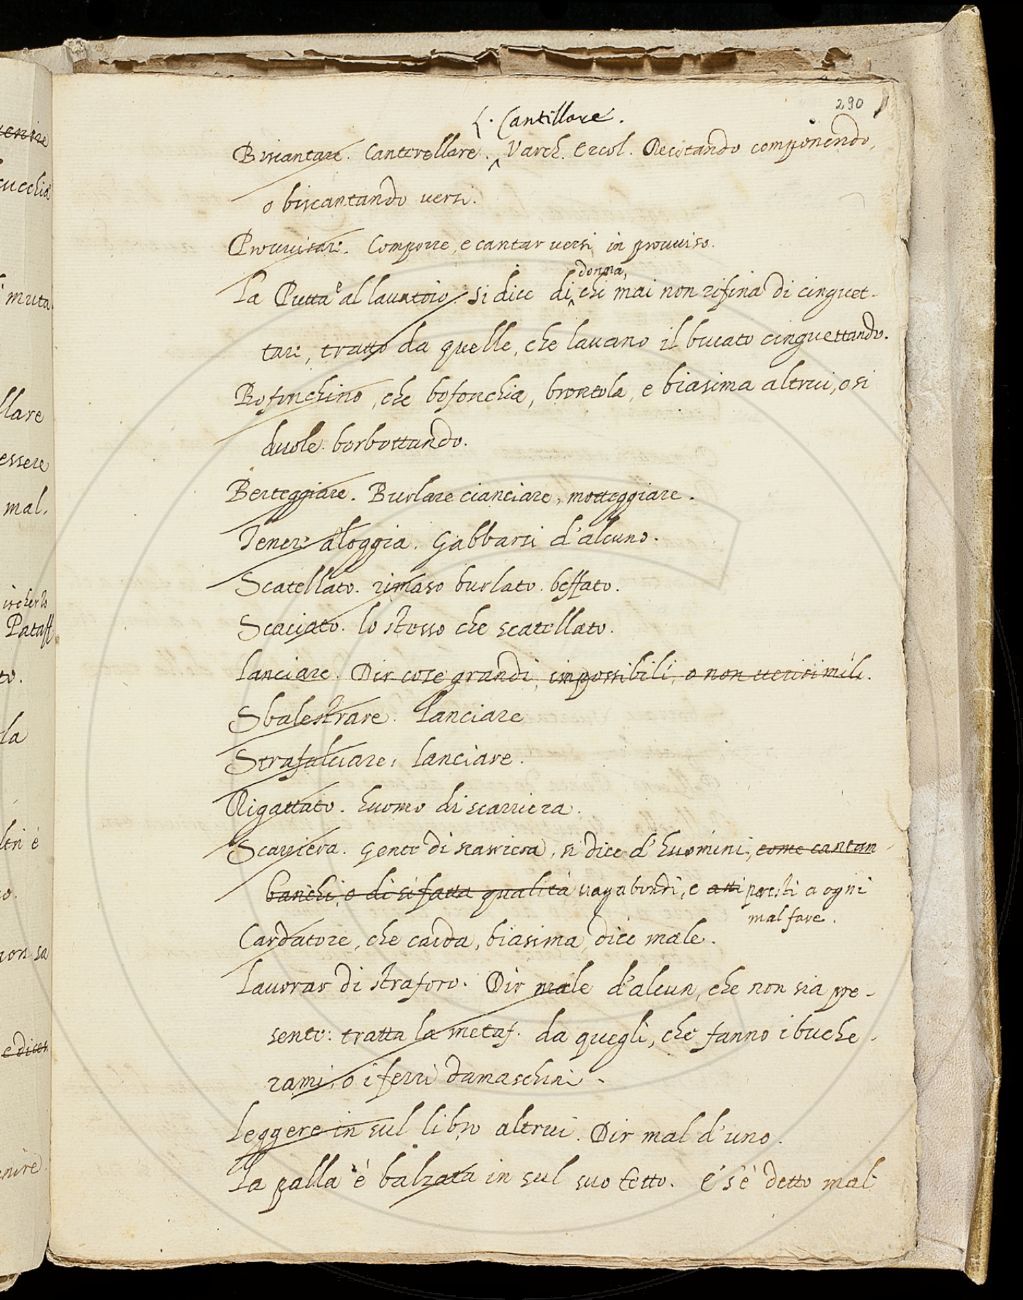 290
L. Cantillare.
Biscantare. Canterellare. Varch. Ercol. Recitando componendo,
o biscantando versi.
Provvisare. Comporre, e cantar versi in provviso.
donna,
La Putta è al lavatoio, si dice di chi mai non rifina di cinguet-
tare, tratto da quelle, che lavano il bucato cinguettando.
Bofonchino, che bofonchia, brontola, e biasima altrui, o si
duole borbottando.
Berteggiare. Burlare cianciare, motteggiare.
Tener a loggia. Gabbarsi d'alcuno.
Scatellato. rimaso burlato. beffato.
Scaciato. lo stesso che scatellato.
Lanciare. Dir cose grandi, impossibili, o non verisimili.
Sbalestrare. Lanciare
Strafalciare, lanciare.
Rigattato. huomo di scarriera.
Scarriera. Gente di scarriera, si dice d'huomini, come cantan
banchi, o di sì fatta qualità vagabondi, e atti presti a ogni
mal fare.
Cardatore, che carda, biasima, dice male.
Lavorar di straforo. Dir male d'alcun, che non sia pre-
sente: tratta la metaf. da quegli, che fanno i buche-
rami, o i ferri damaschini.
Leggere in sul libro altrui. Dir mal d'uno.
La palla è balzata in sul suo tetto. E s'è detto mal
muta
llare
essere
mal.
Pataff
to.
la
ltri è
o.
non sa
e dicon